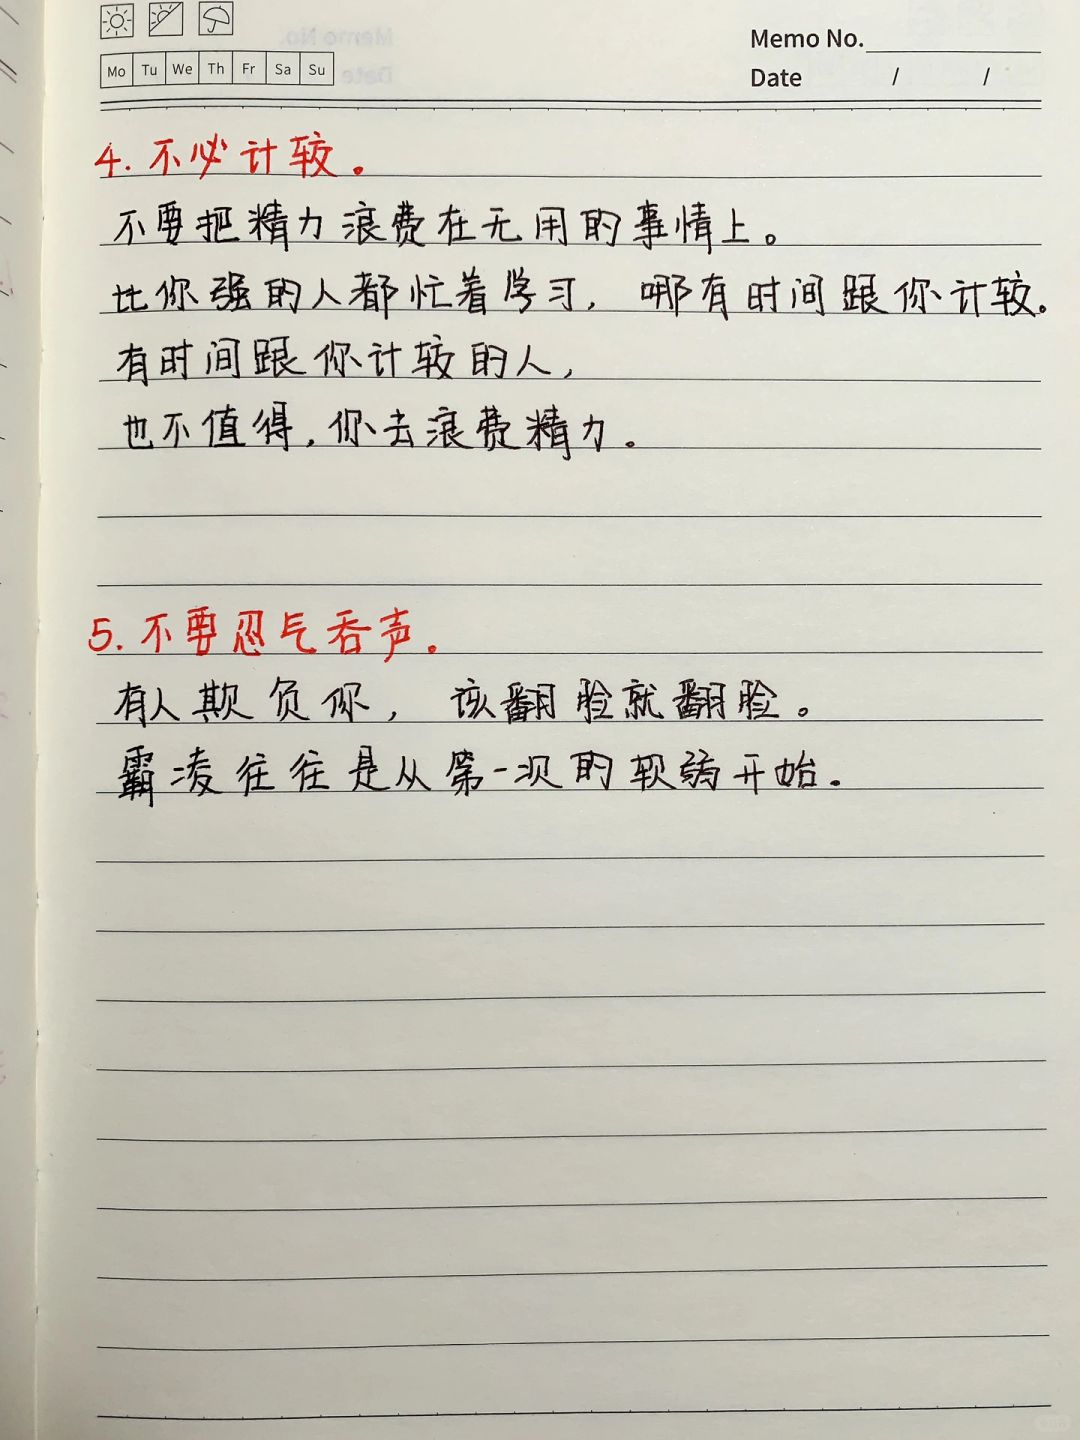 Memo No.
Mo Tu We Th Fr Sa Su
Date / /
4. 不必计较。
不要把精力浪费在无用的事情上。
比你强的人都忙着学习, 哪有时间跟你计较。
有时间跟你计较的人,
也不值得,你去浪费精力。
5. 不要忍气吞声。
有人欺负你, 该翻脸就翻脸。
霸凌往往是从第一次的软弱开始。